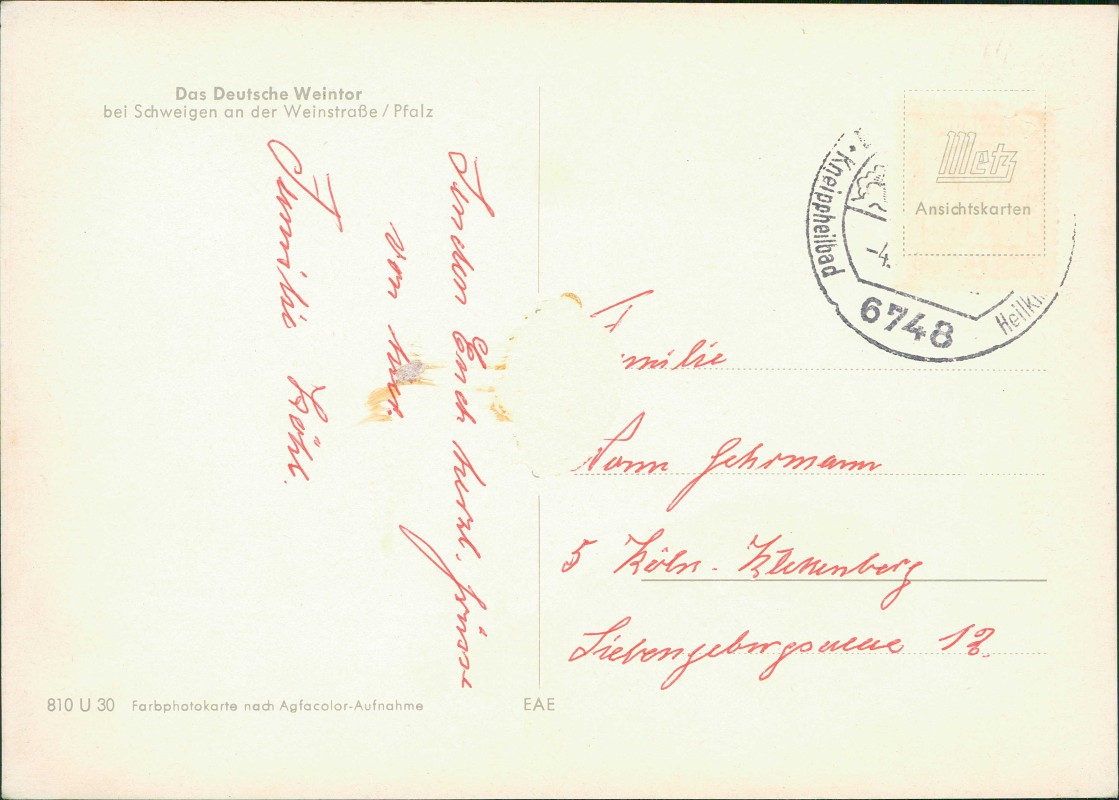 Das Deutsche Weintor
bei Schweigen an der Weinstraße / Pfalz
Senden Euch herzl. Grüsse
von hier.
Familie Löhl.
Metz
Ansichtskarten
Kneippheilbad
-4.
6748
Heilkl
F
milie
Gehrmann
5 Köln - Klettenberg
Siebengebirgsallee 12
810 U 30 Farbphotokarte nach Agfacolor-Aufnahme
EAE